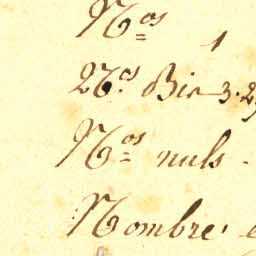 Nos
1
Nos Bis 3. 2
Nos nuls -
Nombre